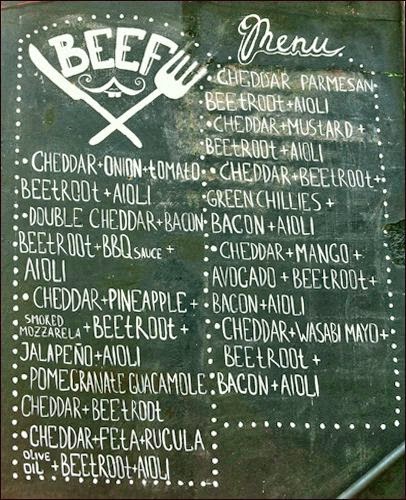 BEEF
Menu
• CHEDDAR+ONION+TOMATO
BEETROOT+AIOLI
• DOUBLE CHEDDAR+BACON
BEETROOT+BBQ SAUCE +
AIOLI
• CHEDDAR+PINEAPPLE+
SMOKED
MOZZARELA +BEETROOT+
JALAPEÑO+AIOLI
• POMEGRANATE GUACAMOLE
CHEDDAR+BEETROOT
• CHEDDAR+FETA+RUCULA
OLIVE
OIL +BEETROOT+AIOLI
• CHEDDAR PARMESAN
BEETROOT+AIOLI
• CHEDDAR+MUSTARD+
BEETROOT+AIOLI
• CHEDDAR+BEETROOT+
GREEN CHILLIES +
BACON+AIOLI
• CHEDDAR+MANGO+
AVOCADO+BEETROOT+
BACON+AIOLI
• CHEDDAR+WASABI MAYO+
BEETROOT+
BACON+AIOLI